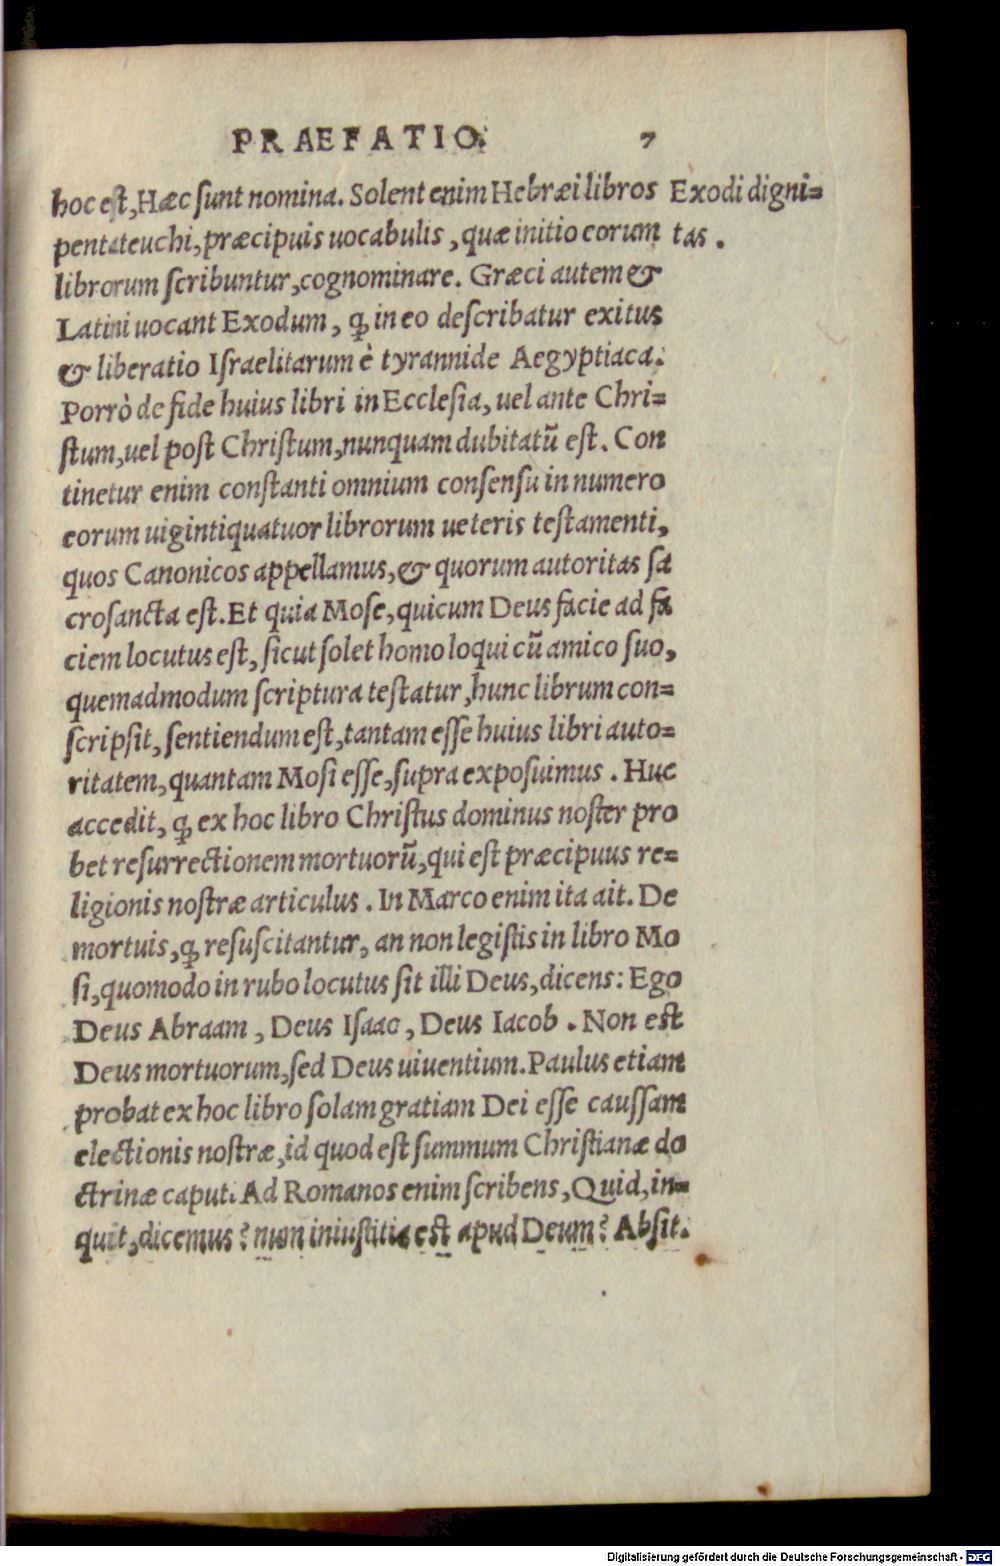 PRAEFATIO. 7
hoc est, Hæc sunt nomina. Solent enim Hebræi libros
Exodi digni=
pentateuchi, præcipuis uocabulis, quæ initio eorum
tas.
librorum scribuntur, cognominare. Græci autem &
Latini uocant Exodum, ꝙ in eo describatur exitus
& liberatio Israelitarum è tyrannide Aegyptiaca.
Porrò de fide huius libri in Ecclesia, uel ante Chri=
stum, uel post Christum, nunquam dubitatū est. Con
tinetur enim constanti omnium consensu in numero
eorum uigintiquatuor librorum ueteris testamenti,
quos Canonicos appellamus, & quorum autoritas sa
crosancta est. Et quia Mose, quicum Deus facie ad fa
ciem locutus est, sicut solet homo loqui cū amico suo,
quemadmodum scriptura testatur, hunc librum con=
scripsit, sentiendum est, tantam esse huius libri auto=
ritatem, quantam Mosi esse, supra exposuimus. Huc
accedit, ꝙ ex hoc libro Christus dominus noster pro
bet resurrectionem mortuorū, qui est præcipuus re=
ligionis nostræ articulus. In Marco enim ita ait. De
mortuis, ꝙ resuscitantur, an non legistis in libro Mo
si, quomodo in rubo locutus sit illi Deus, dicens: Ego
Deus Abraam, Deus Isaac, Deus Iacob. Non est
Deus mortuorum, sed Deus uiuentium. Paulus etiam
probat ex hoc libro solam gratiam Dei esse caussam
electionis nostræ, id quod est summum Christianæ do
ctrinæ caput. Ad Romanos enim scribens, Quid, in=
quit, dicemus? num iniustitia est apud Deum? Absit.
Digitalisierung gefördert durch die Deutsche Forschungsgemeinschaft - DFG